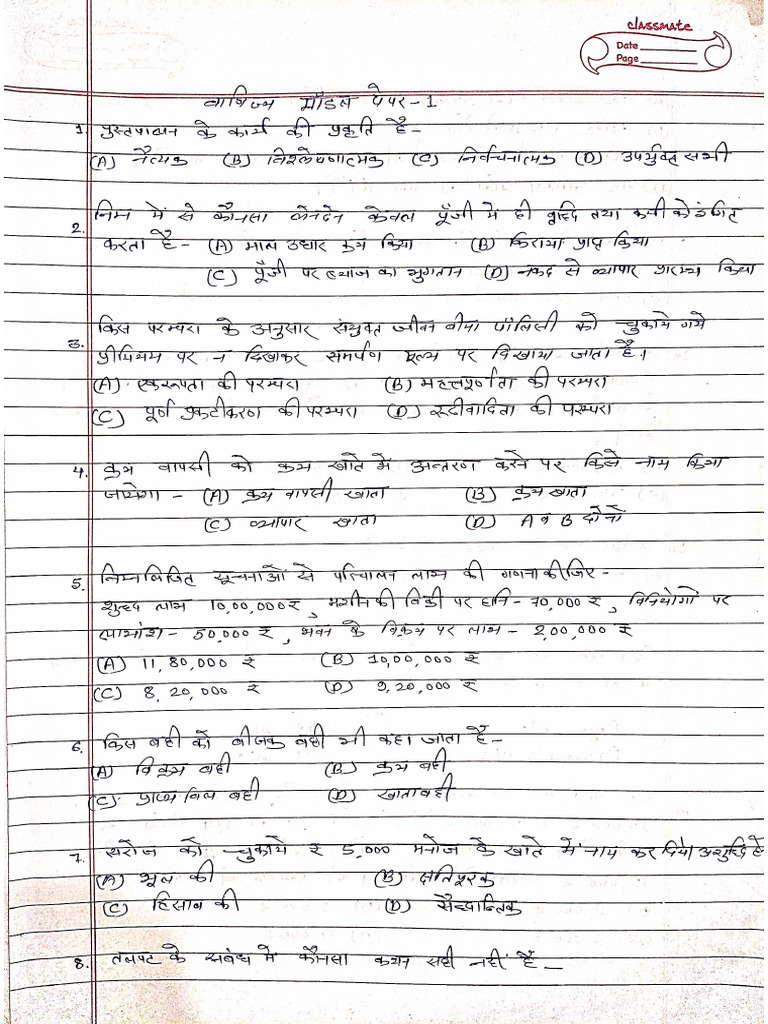 classmate
Date
Page
वाणिज्य मॉडल पेपर - 1
1. पुस्तपालन के कार्य की प्रकृति है -
(A) नैत्यक (B) विश्लेषणात्मक (C) निर्वचनात्मक (D) उपर्युक्त सभी
2. निम्न में से कौनसा लेनदेन केवल पूँजी में ही वृद्धि तथा कमी को इंगित
करता है - (A) माल उधार क्रय किया (B) किराया प्राप्त किया
(C) पूँजी पर ब्याज का भुगतान (D) नकद से व्यापार प्रारम्भ किया
3. किस परम्परा के अनुसार संयुक्त जीवन बीमा पॉलिसी को चुकाये गये
प्रीमियम पर न दिखाकर समर्पण मूल्य पर दिखाया जाता है।
(A) एकरूपता की परम्परा (B) महत्तपूर्णता की परम्परा
(C) पूर्ण प्रकटीकरण की परम्परा (D) रूढीवादिता की परम्परा
4. क्रय वापसी को क्रय खाते में अन्तरण करने पर किसे नाम किया
जायेगा - (A) क्रय वापसी खाता (B) क्रय खाता
(C) व्यापार खाता (D) A व B दोनों
5. निम्नलिखित सूचनाओं से परिचालन लाभ की गणना कीजिए -
शुद्ध लाभ 10,00,000₹, मशीन की बिक्री पर हानि - 70,000 ₹, विनियोगों पर
लाभांश - 50,000 ₹, भवन के विक्रय पर लाभ - 2,00,000 ₹
(A) 11,80,000 ₹ (B) 10,00,000 ₹
(C) 8,20,000 ₹ (D) 9,20,000 ₹
6. किस बही को बीजक बही भी कहा जाता है -
(A) विक्रय बही (B) क्रय बही
(C) प्राप्य बिल बही (D) खाताबही
7. सरोज को चुकाये ₹ 5,000 मनोज के खाते में नाम कर दिया अशुद्धि है
(A) भूल की (B) क्षतिपूरक
(C) हिसाब की (D) सैद्धान्तिक
8. तलपट के संबंध में कौनसा कथन सही नहीं है -